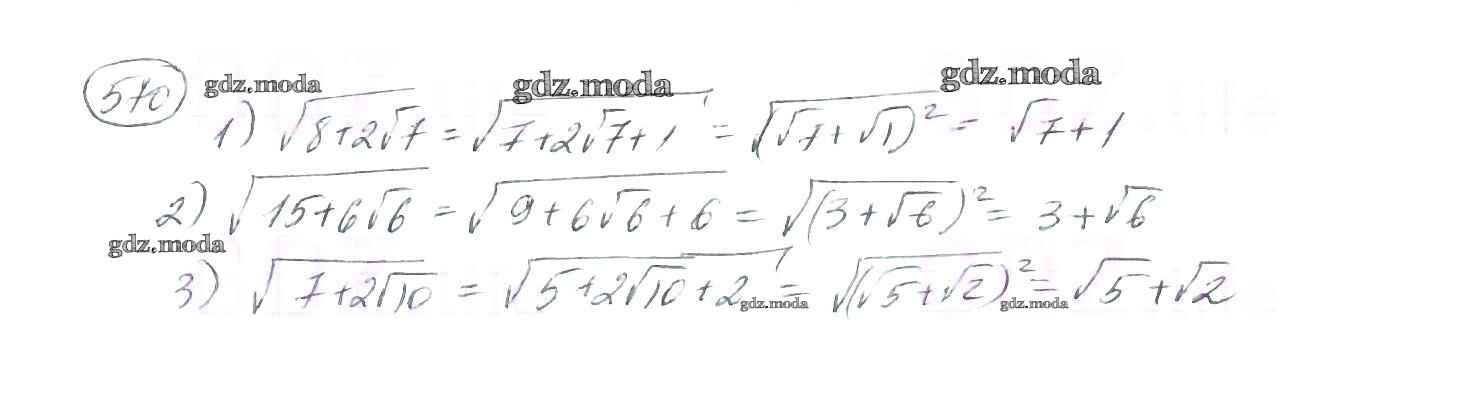 570 gdz.moda gdz.moda gdz.moda
1) √8+2√7 = √7+2√7+1 = √(√7+√1)² = √7+1
2) √15+6√6 = √9+6√6+6 = √(3+√6)² = 3+√6
gdz.moda
3) √7+2√10 = √5+2√10+2 = √(√5+√2)² = √5+√2
gdz.moda gdz.moda